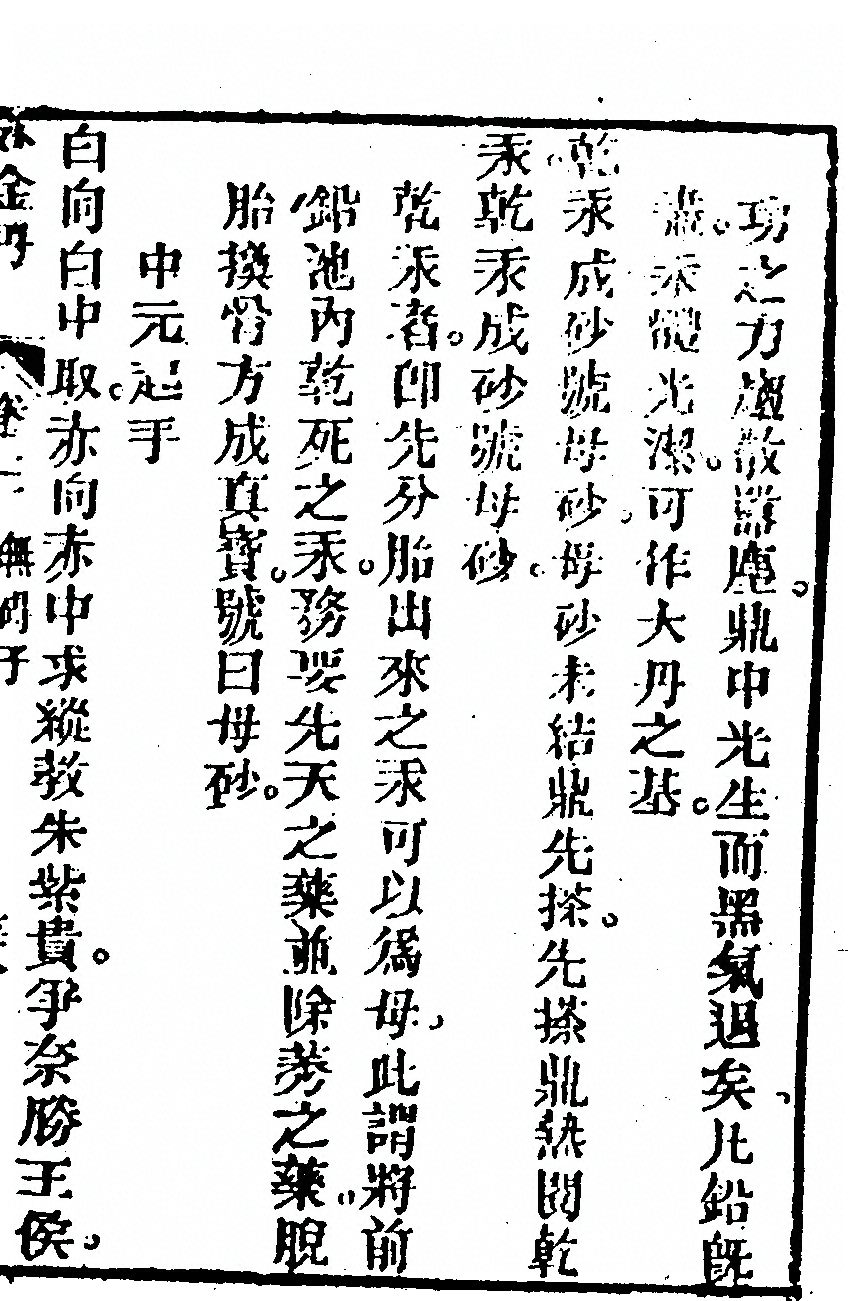 功之力趨散器塵。鼎中光生而黑氣退矣凡鉛旣
盡。汞體光潔。可作大丹之基。
乾汞成砂號母砂。母砂未結鼎先搽。先搽鼎熱閧乾
汞。乾汞成砂號母砂。
乾汞者。卽先分胎出來之汞可以爲母。此謂將前
鉛池內乾死之汞。務要先天之藥並除莠之藥。脫
胎換骨方成真寶。號曰母砂。
中元起手
白向白中取。赤向赤中求縱教朱紫貴。爭奈勝王侯。
金丹 卷二 無 子